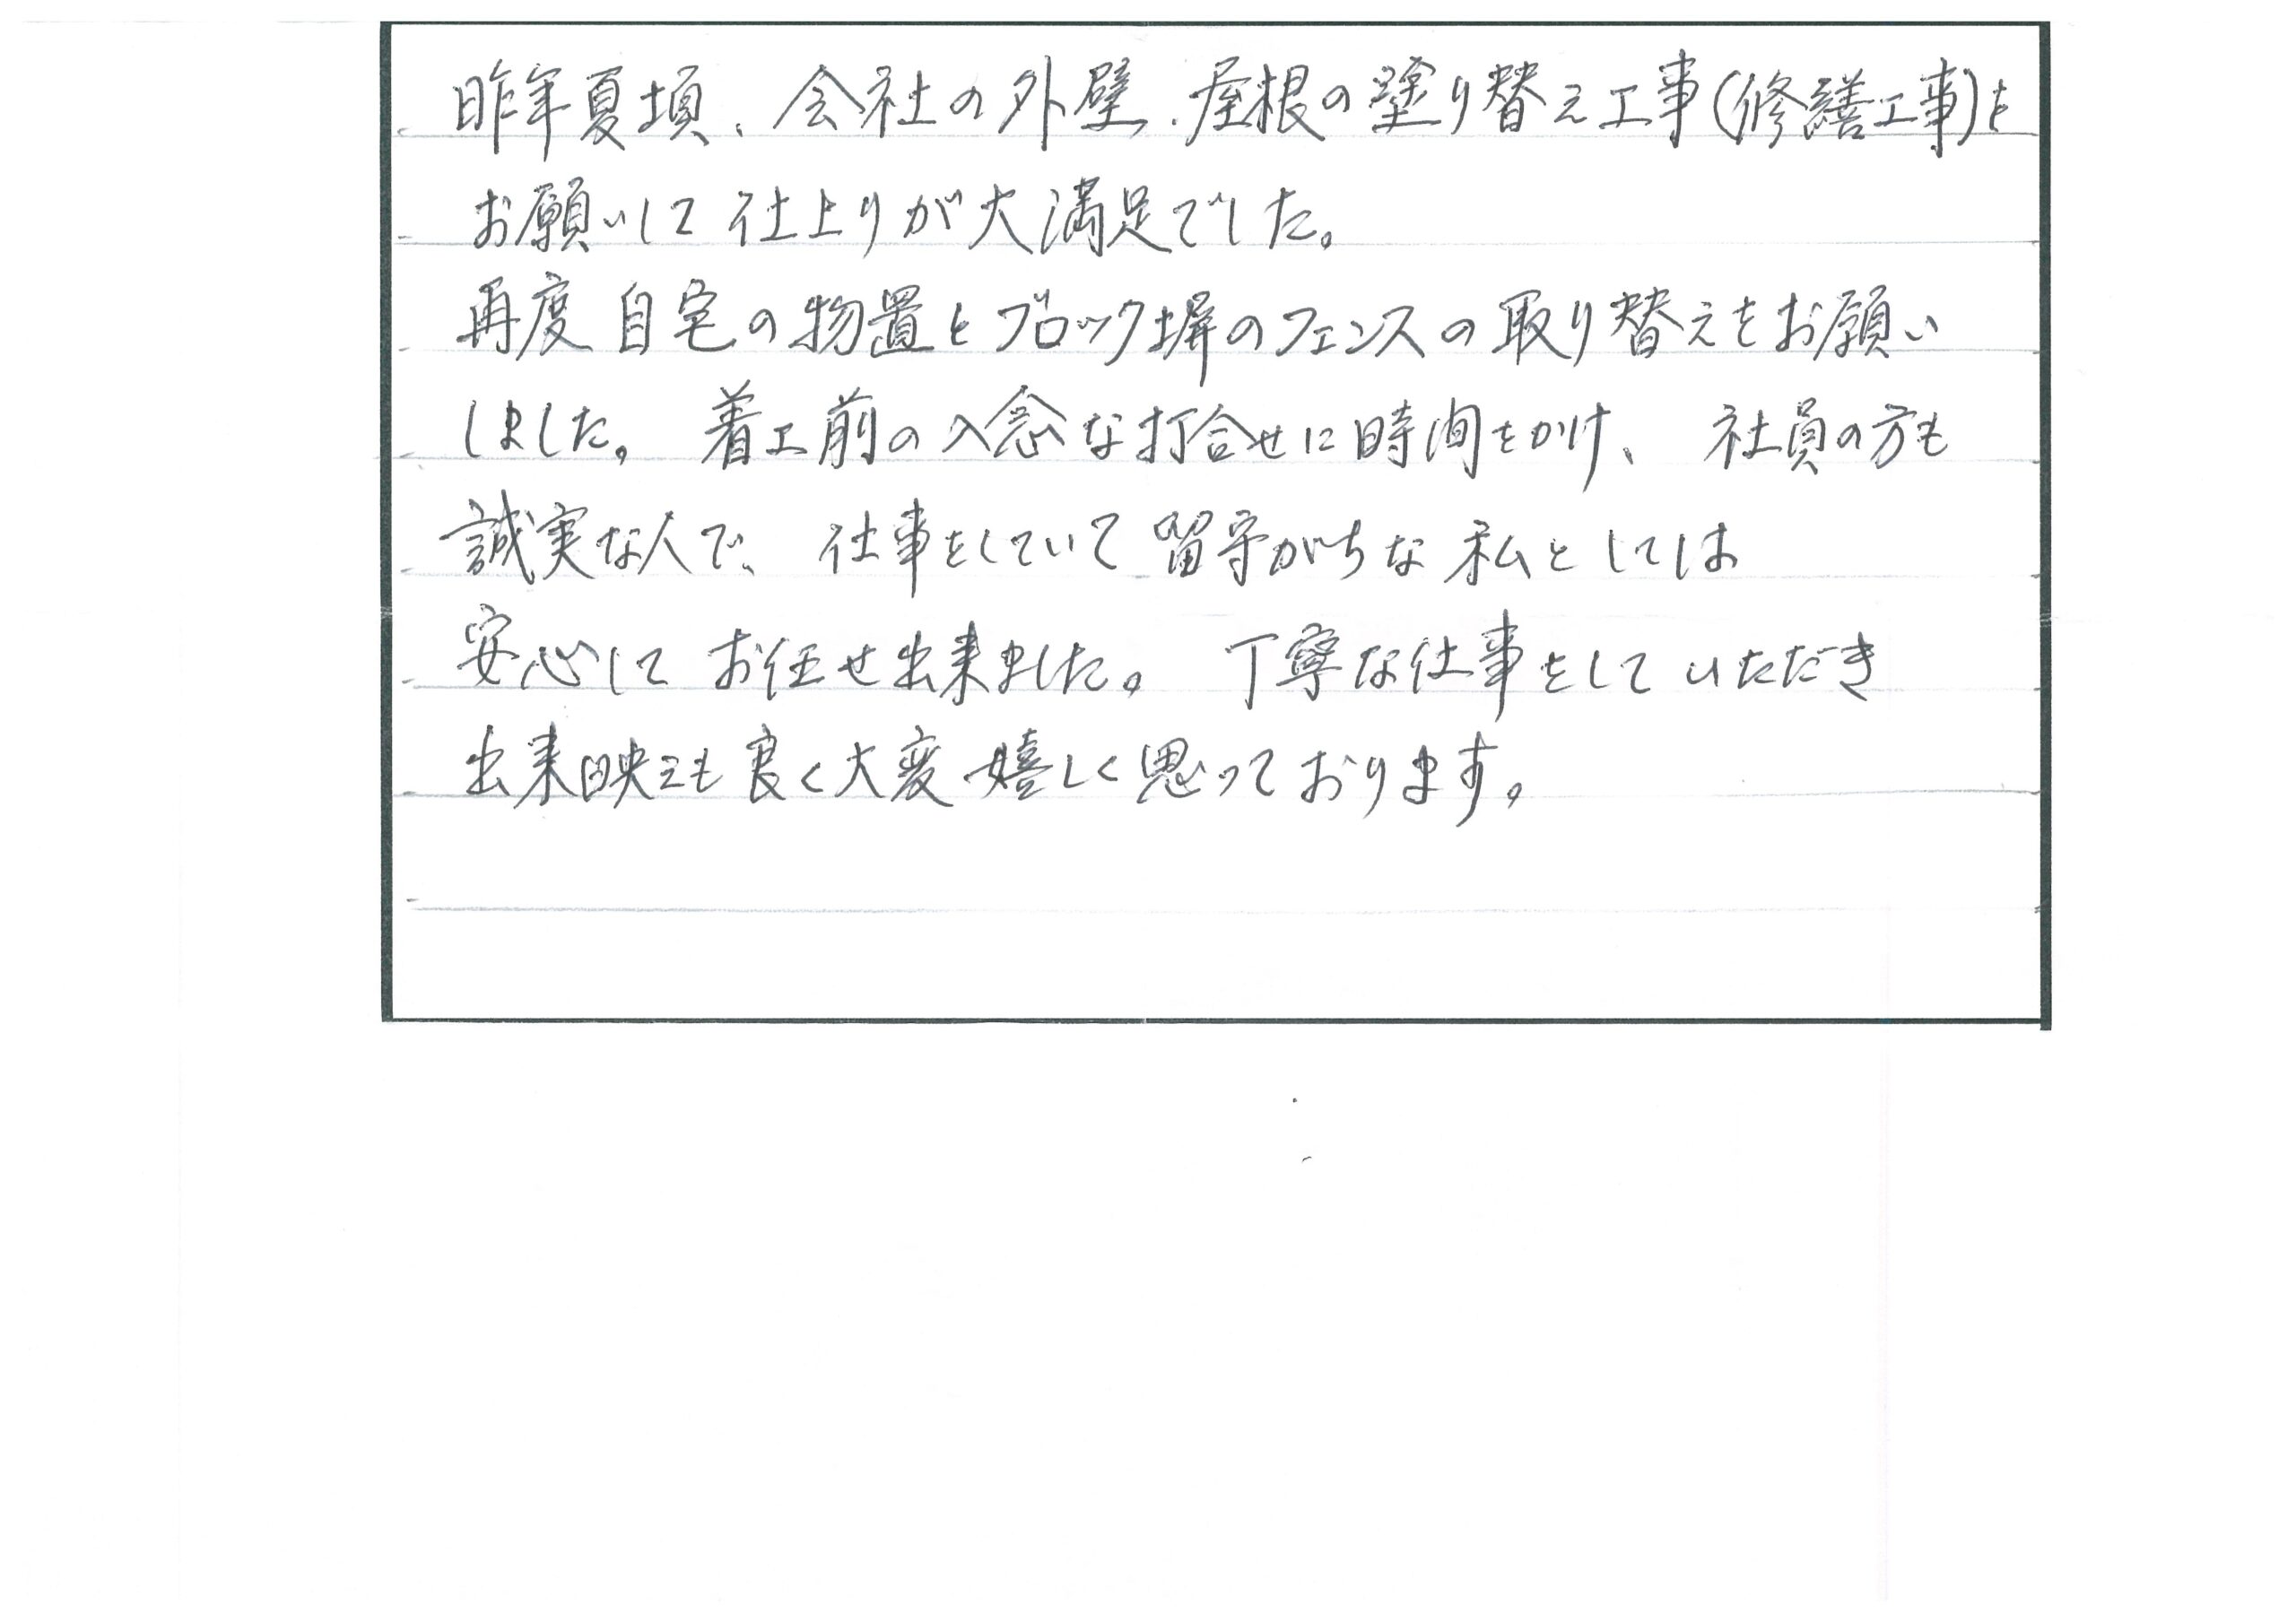 昨年夏頃、会社の外壁、屋根の塗り替え工事(修繕工事)を
お願いして仕上りが大満足でした。
再度自宅の物置とブロック塀のフェンスの取り替えをお願い
しました。着工前の入念な打合せに時間をかけ、社員の方も
誠実な人で、仕事をしていて留守がちな私としては
安心してお任せ出来ました。丁寧な仕事をしていただき
出来映えも良く大変嬉しく思っております。